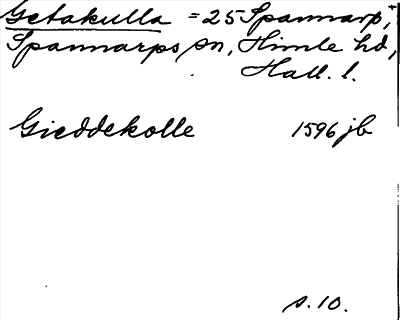 Getakulla = 25 Spannarp,
Spannarps sn, Himle hd,
Hall. l.
Gieddekolle 1596 jb
s. 10.